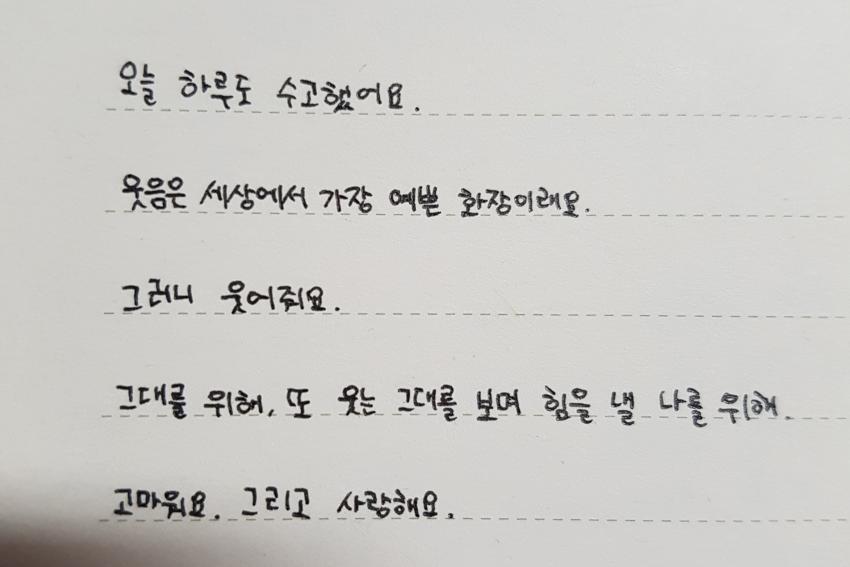 오늘 하루도 수고했어요.
웃음은 세상에서 가장 예쁜 화장이래요.
그러니 웃어줘요.
그대를 위해, 또 웃는 그대를 보며 힘을 낼 나를 위해.
고마워요. 그리고 사랑해요.